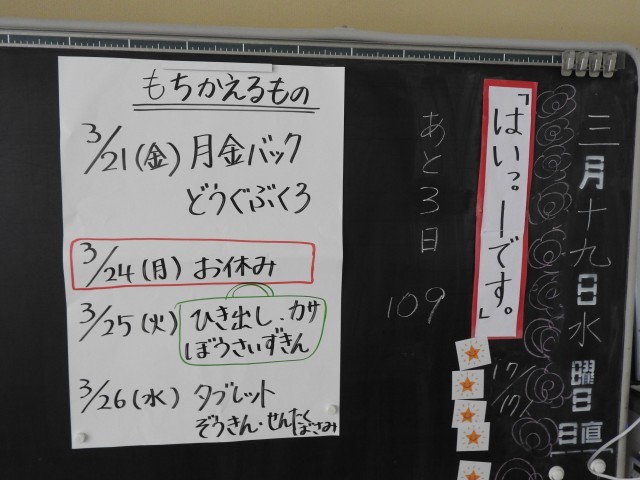 もちかえるもの
3/21(金) 月金バック
どうぐぶくろ
3/24(月) お休み
3/25(火) ひき出し.カサ
ぼうさいずきん
3/26(水) タブレット
ぞうきん・せんたくばさみ
あと3日
109
「はい。ーです。」
三月十九日水曜日
日直